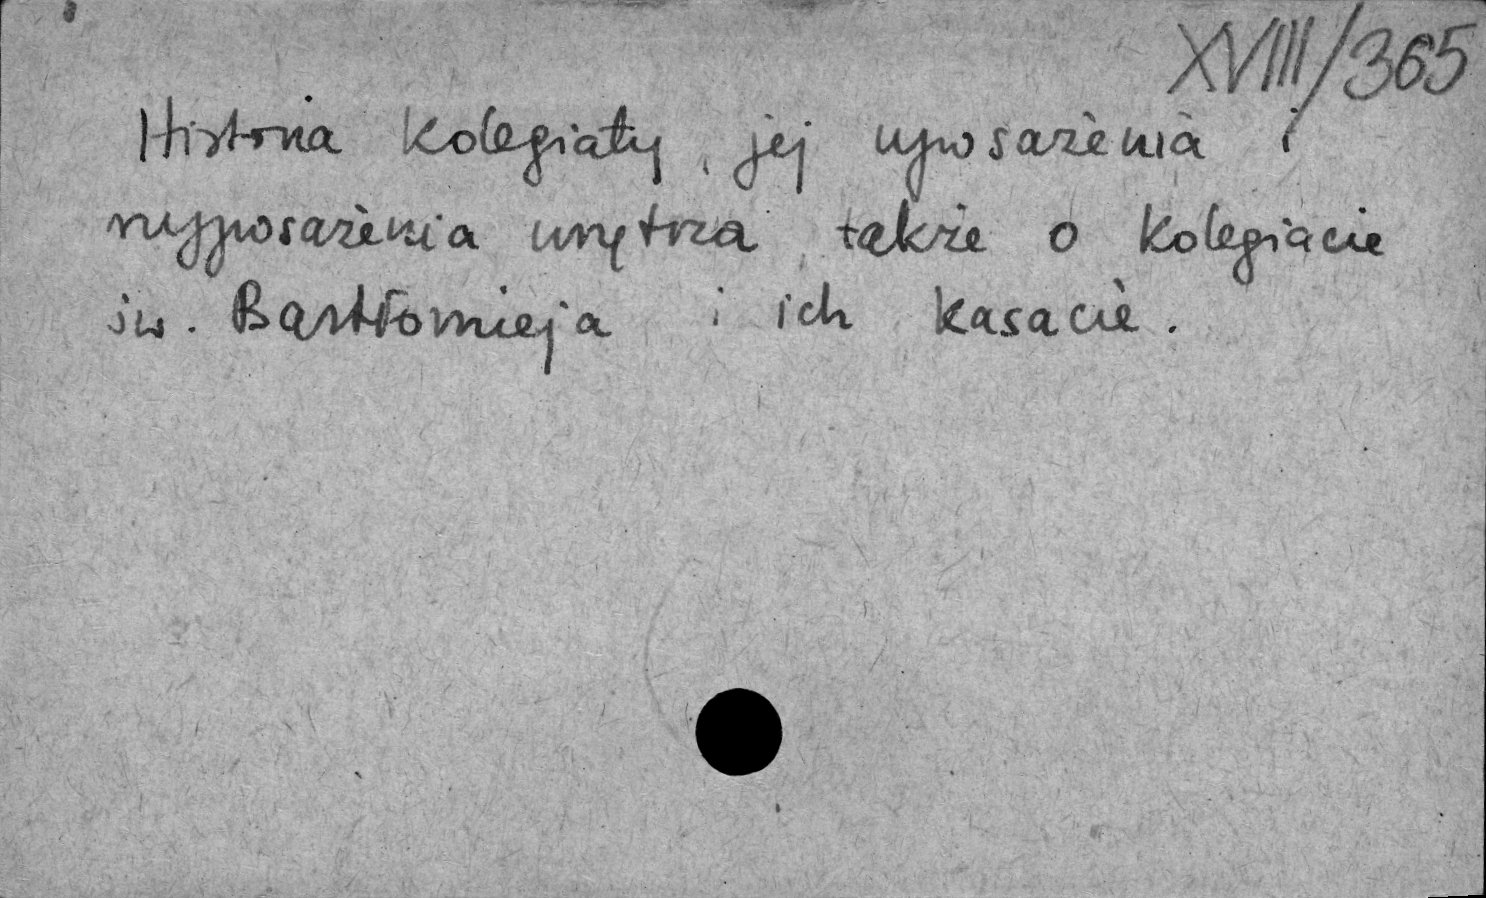 XVIII/365
Historia Kolegiaty, jej uposażenia i
wyposażenia wnętrza, także o Kolegiacie
św. Bartłomieja i ich kasacie.